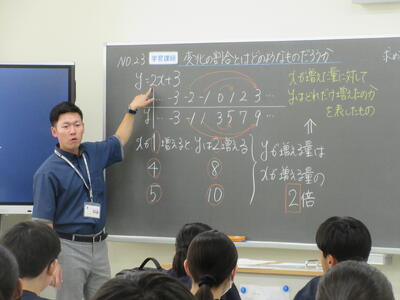 NO.23 学習課題 変化の割合とはどのようなものだろうか
y=2x+3
… -3 -2 -1 0 1 2 3 …
y … -3 -1 1 3 5 7 9 …
xが1増えるとyは2増える
4 8
5 10
yが増える量は
xが増える量の
2倍
xが増えた量に対して
yはどれだけ増えたのか
を表したもの
⇑
求め